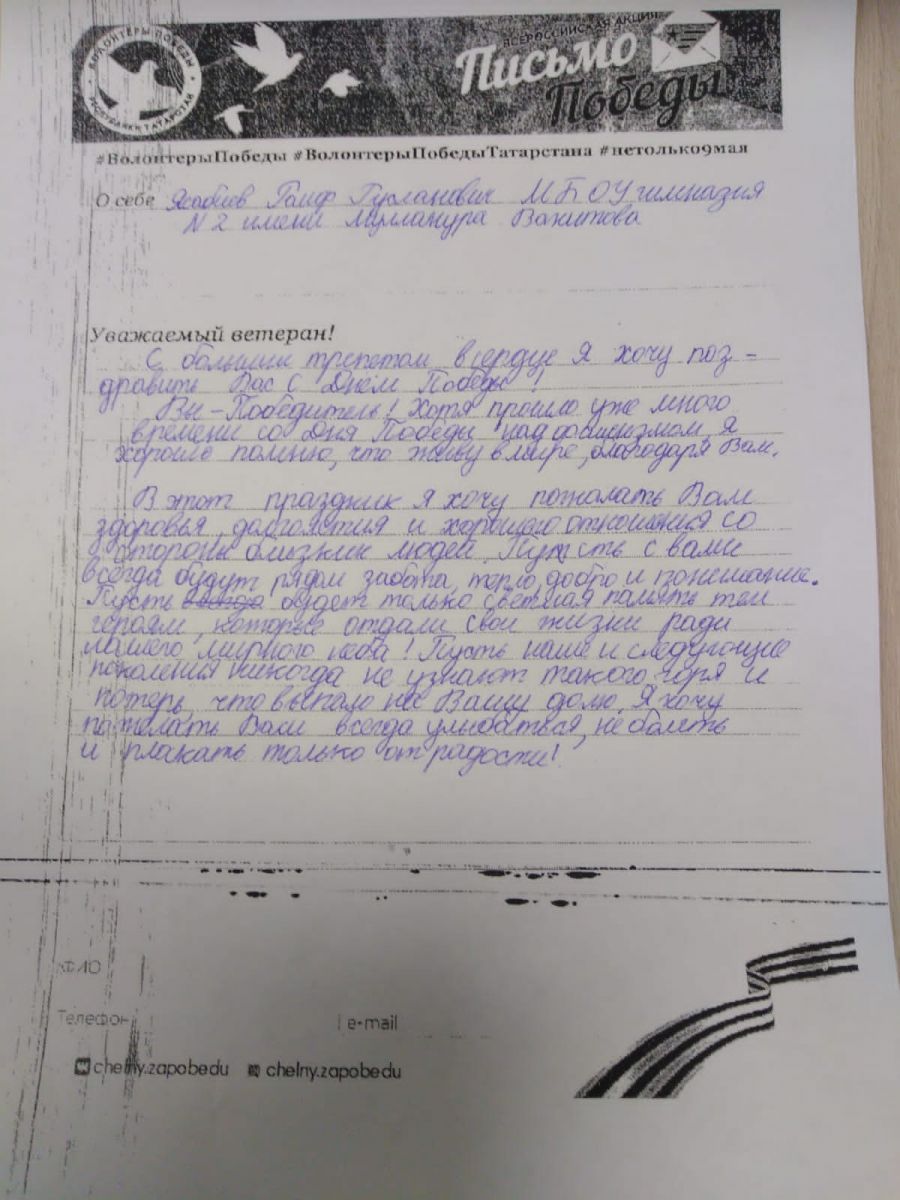 ВОЛОНТЕРЫ ПОБЕДЫ
РЕСПУБЛИКИ ТАТАРСТАН
ВСЕРОССИЙСКАЯ АКЦИЯ
Письмо
Победы
#ВолонтерыПобеды #ВолонтерыПобедыТатарстана #нетолько9мая
О себе Раиф Русланович МБОУ гимназия
N2 имени Мулланура Вахитова
Уважаемый ветеран!
С большим трепетом в сердце я хочу поз-
дравить Вас с Днем Победы!
Вы - Победитель! Хотя прошло уже много
времени со Дня Победы над фашизмом, я
хорошо помню, что живу в мире, благодаря Вам.
В этот праздник я хочу пожелать Вам
здоровья, долголетия и хорошего отношения со
стороны близких людей. Пусть с вами
всегда будут рядом забота, тепло, добро и понимание.
Пусть всегда будет только светлая память тем
героям, которые отдали свои жизни ради
нашего мирного неба! Пусть наше и следующие
поколения никогда не узнают такого горя и
потерь, что выпало на Вашу долю. Я хочу
пожелать Вам всегда улыбаться, не болеть
и плакать только от радости!
ФИО
Телефон
e-mail
chelny.zapobedu chelny.zapobedu